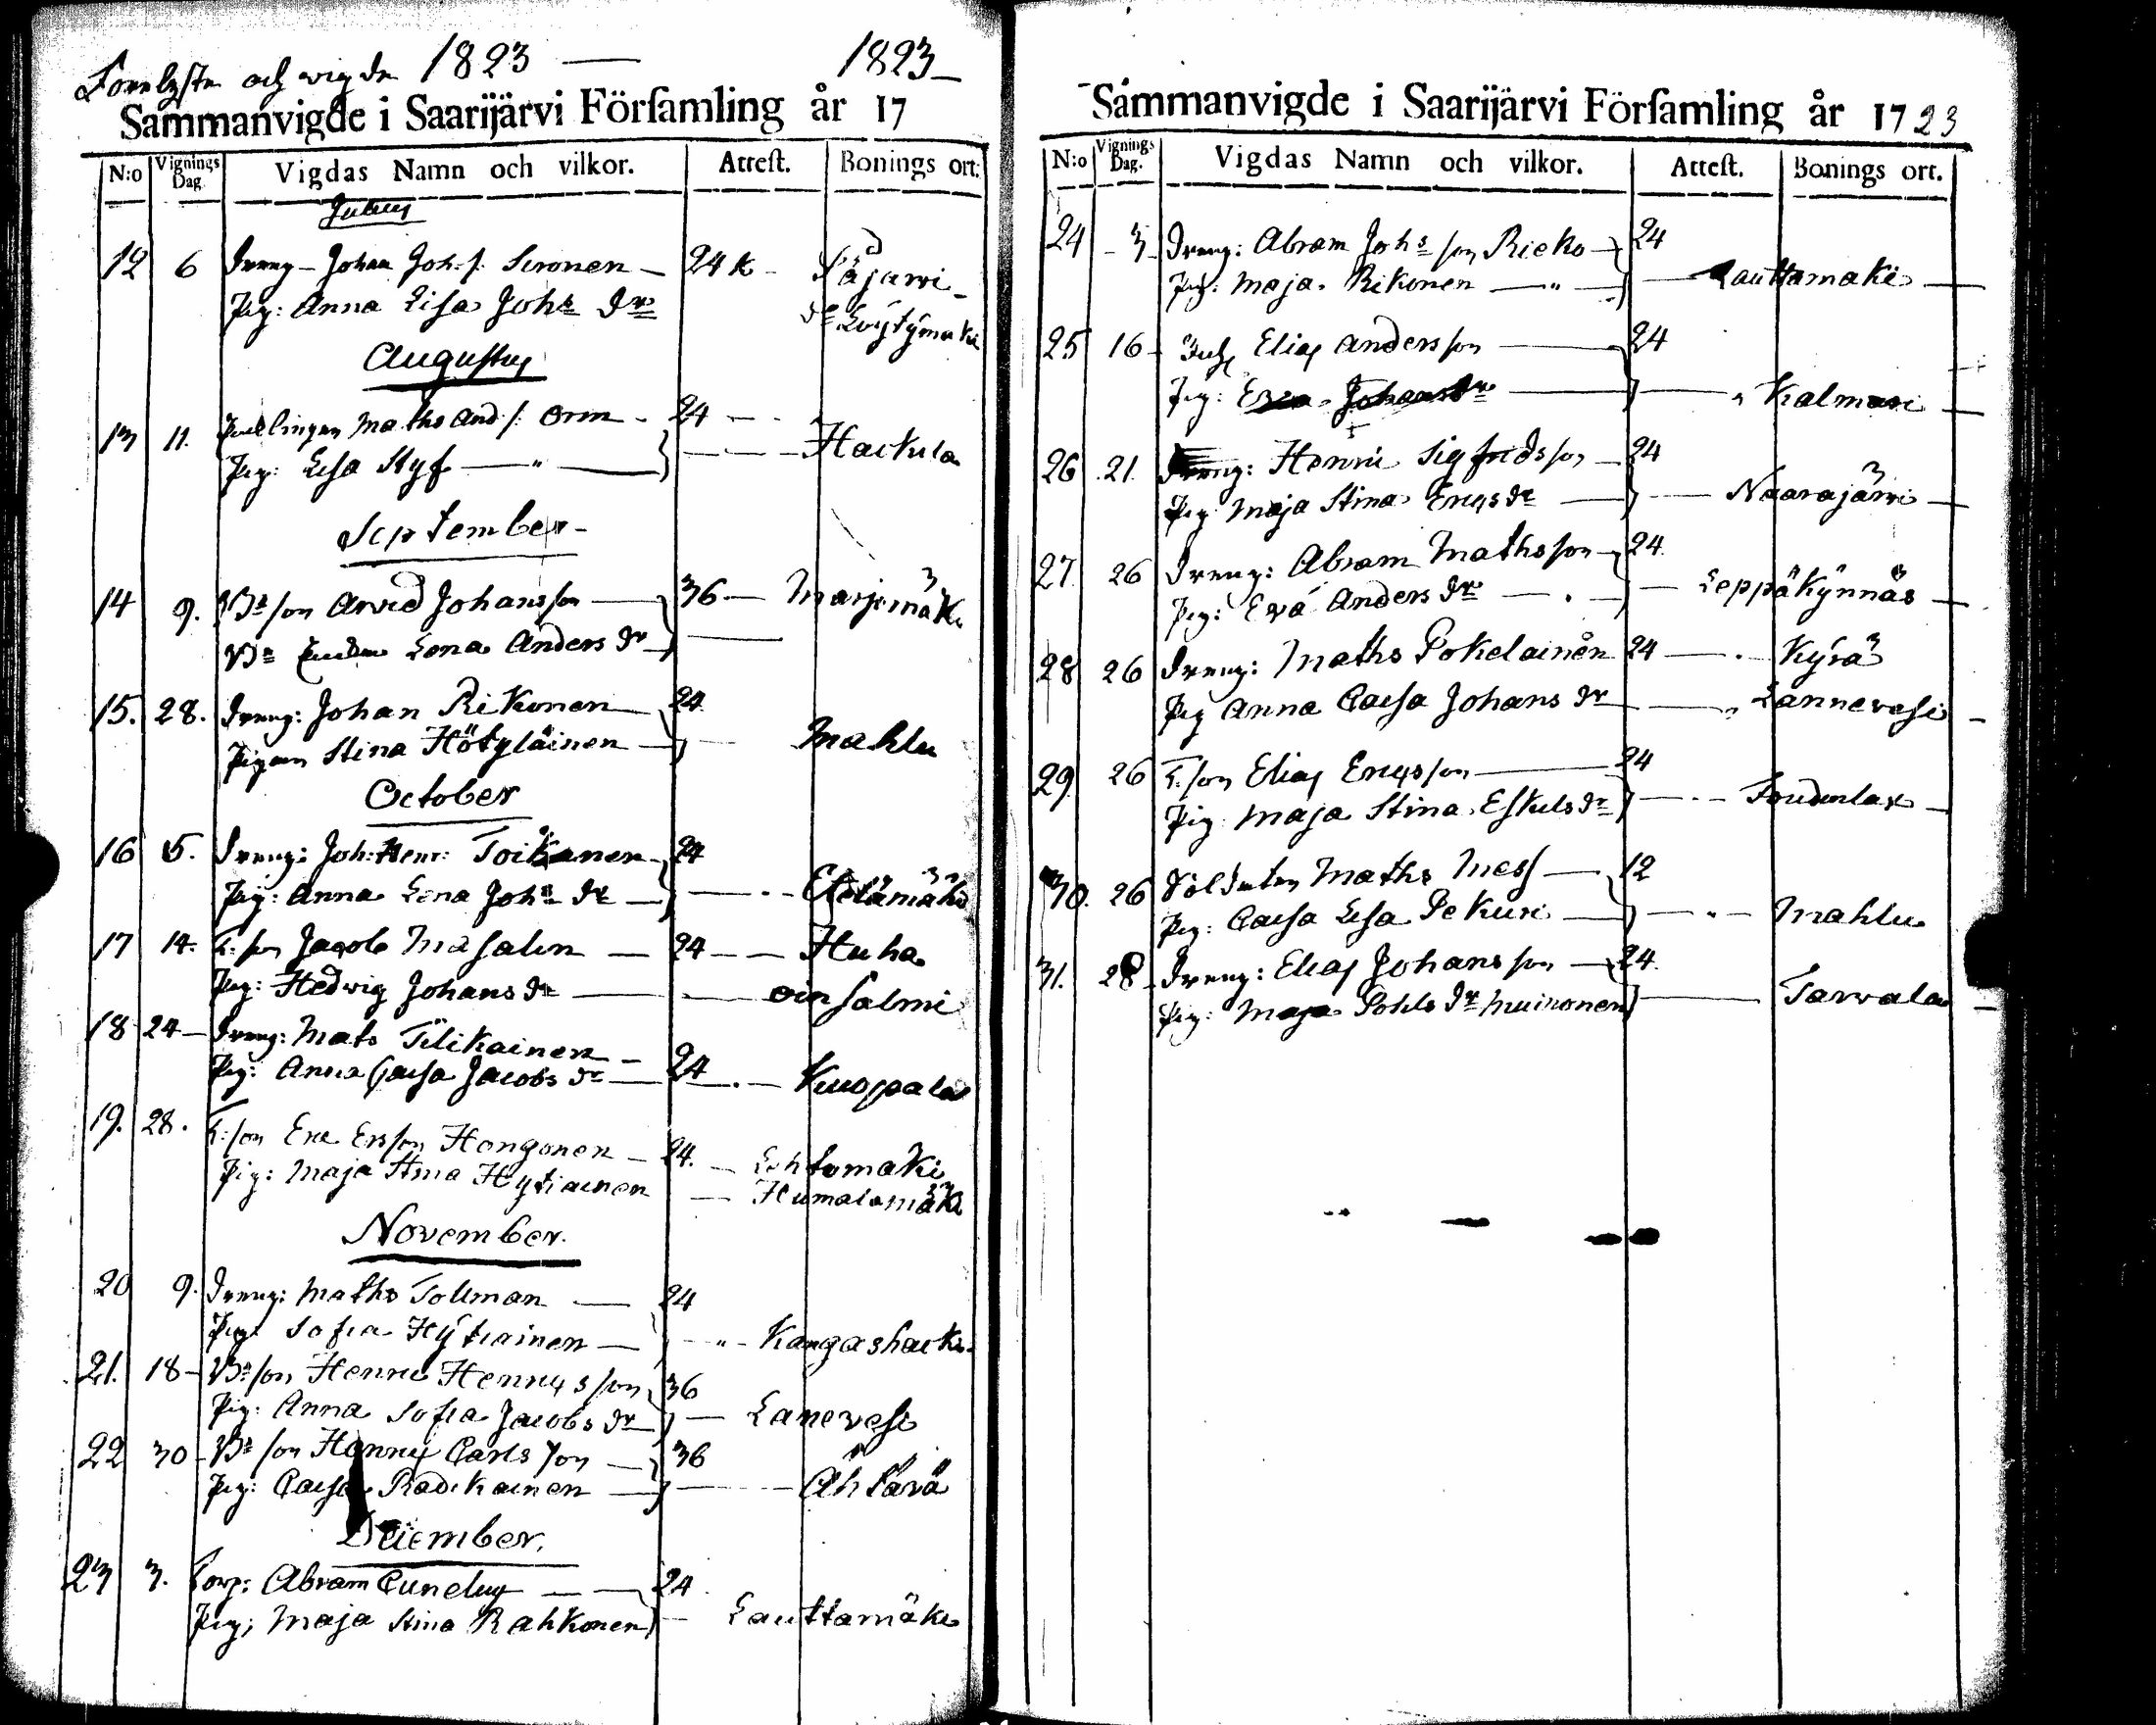 Forelyste och vigde 1823 — 1823 —
Sammanvigde i Saarijärvi Förſamling år 17
N:o Vignings Dag. Vigdas Namn och vilkor. Atteſt. Bonings ort.
Julius
12 6 Dreng – Johan Joh: s. Sironen — 24 k – Pääjärvi –
Pig: Anna Lisa Johs dr Löytymäki
Augustus
13 11. Maths And s: Orm – 24 – –
Pig: Lisa Styf — " — Haikula
September –
14 9. Bd son Arvid Johansson — 36 — Marjomäki
Bd Lena Anders dr —
15. 28. Dreng: Johan Rikonen — 24
Pigan Stina Hötyläinen — Mahlu
October
16 5. Dreng: Joh: Henr: Toikkanen – 24
Pig: Anna Lena Johs dr — Etelämäki
17 14. T: son Jacob Masalin — 24 — — Huha
Pig: Hedvig Johans dr — oinsalmi
18 24 – Dreng: Mats Tilikainen –
Pig: Anna Caisa Jacobs dr — 24 — Kuoppala
19. 28. T: son Eric Ersson Hongonen – 24. – Lehtomäki
Pig: Maja Stina Hytiainen — Humalamäki
November.
20 9. Dreng: Maths Tollman — 24
Pig: Sofia Hytiainen — " – Kangashäki
21. 18 – Bd son Henric Henricsson 36
Pig: Anna Sofia Jacobs dr — Lanevesi
22 30 – Bd son Henric Carlsson — 36
Pig: Caisa Radikainen — Ähtärä
December.
23 3. Torp: Abram Cunelius — 24
Pig; Maja Stina Rahkonen — Lauttamäki
Sammanvigde i Saarijärvi Förſamling år 1723
N:o Vignings Dag. Vigdas Namn och vilkor. Atteſt. Bonings ort.
24 – 3 – Dreng: Abram Johs son Rieko — 24
Pig: Maja Rikonen — " — Lauttamäki —
25 16 – Elias Andersson — 24
Pig: Johans dr — Kalmari —
26 21. Dreng: Henric Sigfridsson — 24
Pig Maja Stina Erics dr — Naarajärvi —
27. 26 Dreng: Abram Mathsson — 24.
Pig: Eva Anders dr — Leppäkynnäs —
28 26 Dreng: Maths Pokelainen 24 — . – Kyrä
Pig Anna Caisa Johans dr — " Lannevesi –
29. 26 T: son Elias Ericsson — 24
Pig Maja Stina Eskils dr —
30. 26 Soldaten Maths Mess — 12
Pig: Caisa Lisa Pekuri — Mahlu
31. 28 – Dreng: Elias Johansson — 24.
Pig: Maja Pohls dr Muironen — Tarvala